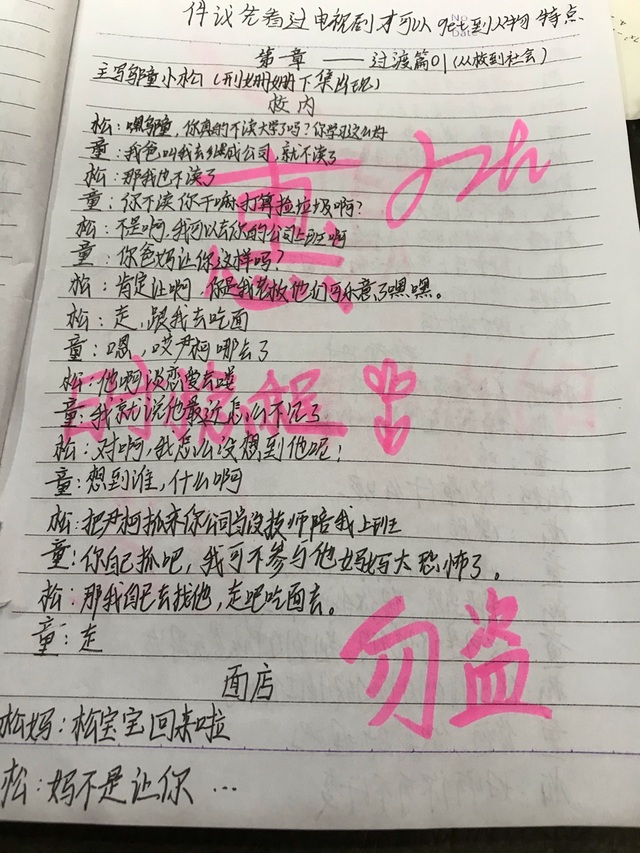 件议先看过电视剧才可以get到人物特点
第一章 ——过渡篇01(从校到社会)
主写邬童小松(刑姗姗下集出现)
校内
松:嘿邬童,你真的不读大学了吗?你学习这么好
童:我爸叫我去继成公司,就不读了
松:那我也不读了
童:你不读你干嘛打算捡垃圾啊?
松:不是啊,我可以去你的公司上班啊
童:你爸妈让你这样吗?
松:肯定让啊,你是我老板他们可乐意了嘿嘿。
松:走,跟我去吃面
童:嗯,哎尹柯哪去了
松:他啊谈恋爱去喽
童:我就说他最近怎么不见了
松:对啊,我怎么没想到他呢!
童:想到谁,什么啊
松:把尹柯抓来你公司当设技师陪我上班
童:你自己抓吧,我可不参与他妈妈太恐怖了。
松:那我自己去找他,走吧吃面去。
童:走
面店
松妈:松宝宝回来啦
松:妈不是让你…
勿盗